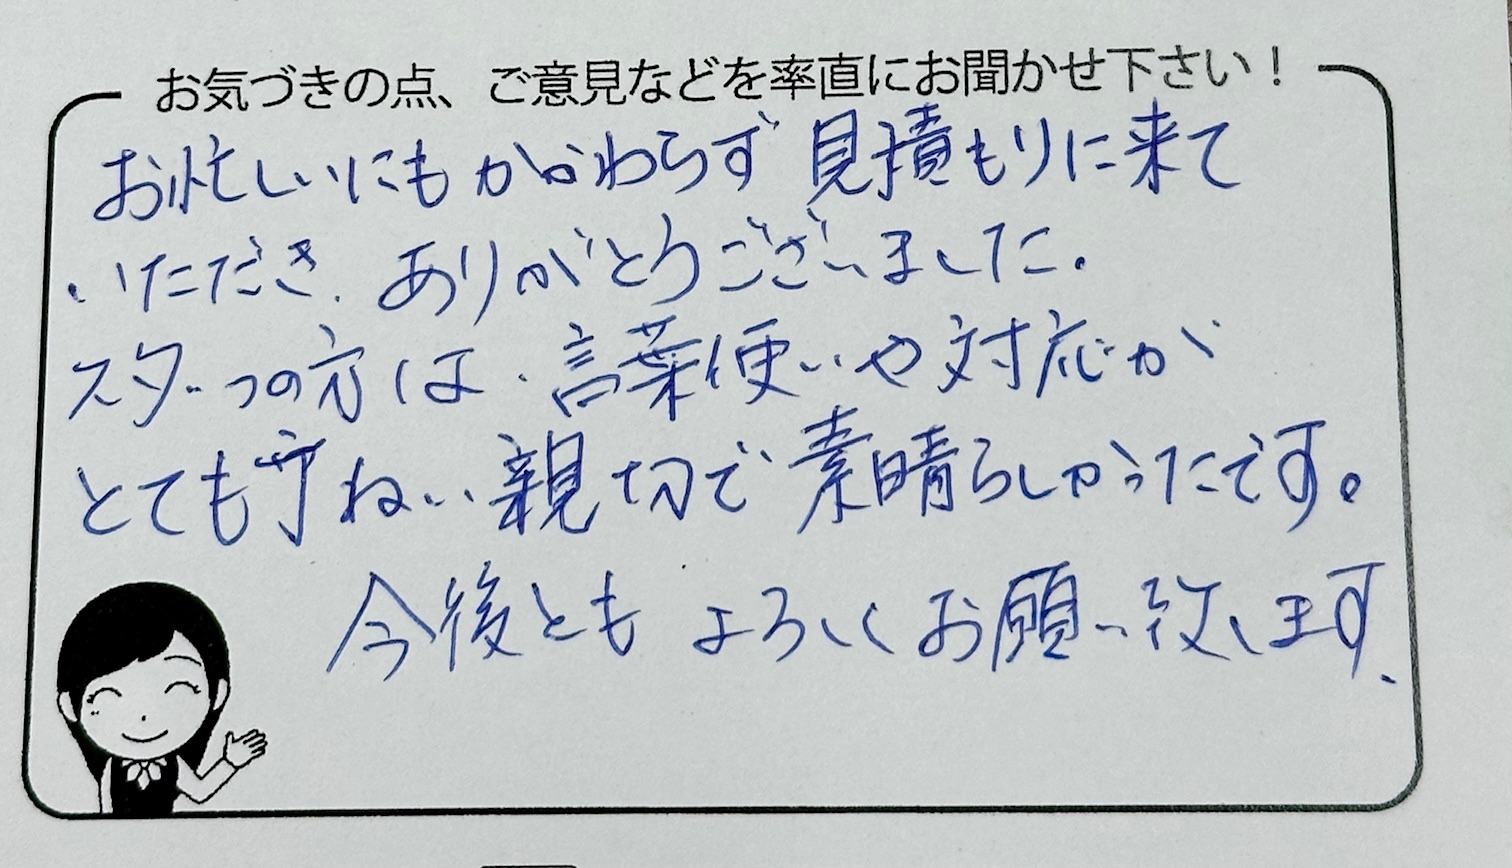 お気づきの点、ご意見などを率直にお聞かせ下さい！
お忙しいにもかかわらず見積もりに来て
いただき、ありがとうございました。
スタッフの方は、言葉使いや対応が
とても丁ねい、親切で素晴らしかったです。
今後ともよろしくお願い致します。